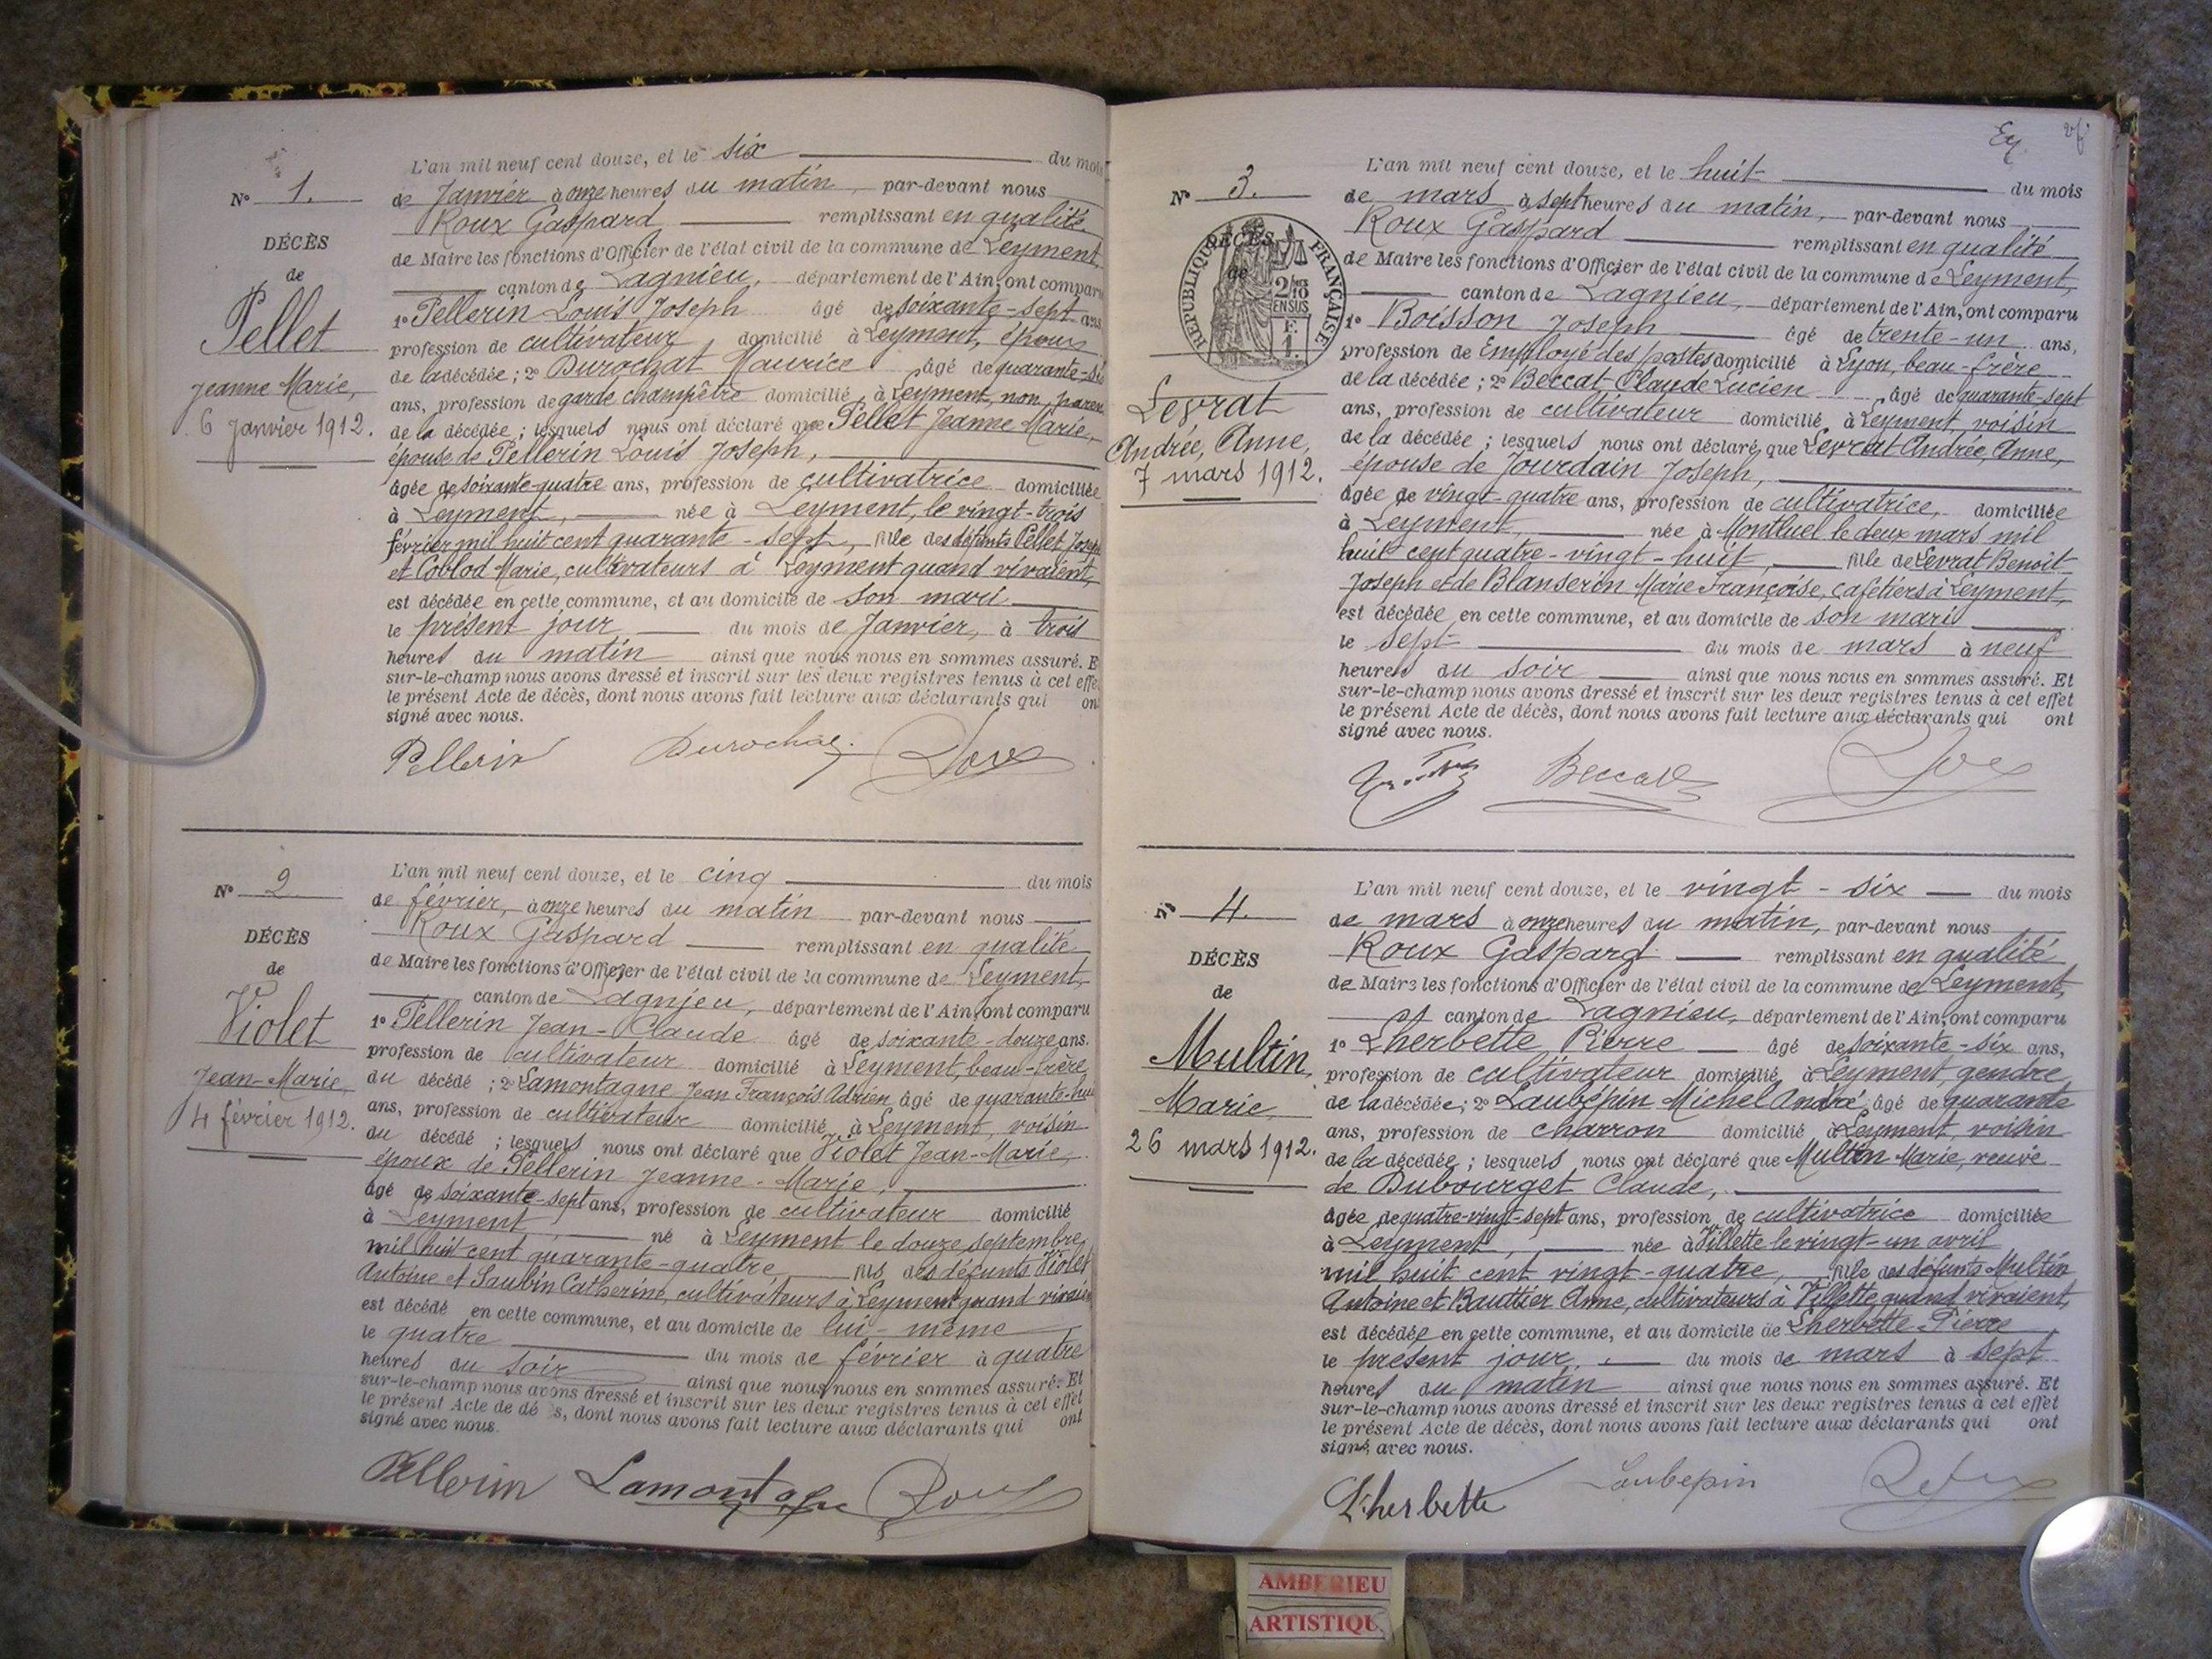 N° 1.
DÉCÈS
de
Pellet
Jeanne Marie,
6 Janvier 1912.
L'an mil neuf cent douze, et le six du mois
de Janvier à onze heures du matin, par-devant nous
Roux Gaspard remplissant en qualité
de Maire les fonctions d'Officier de l'état civil de la commune de Leyment,
canton de Lagnieu, département de l'Ain, ont comparu
1° Pellerin Louis Joseph âgé de soixante-sept ans
profession de cultivateur domicilié à Leyment, époux
de la décédée ; 2° Durochat Maurice âgé de quarante-six
ans, profession de garde champêtre domicilié à Leyment, non paren
de la décédée ; lesquels nous ont déclaré que Pellet Jeanne Marie,
épouse de Pellerin Louis Joseph,
âgée de soixante-quatre ans, profession de cultivatrice domiciliée
à Leyment, née à Leyment, le vingt-trois
février mil huit cent quarante-sept, fille des défunts Pellet Joseph
et Coblod Marie, cultivateurs à Leyment quand vivaient,
est décédée en cette commune, et au domicile de son mari
le présent jour du mois de Janvier, à trois
heures du matin ainsi que nous nous en sommes assuré. E
sur-le-champ nous avons dressé et inscrit sur les deux registres tenus à cet effe
le présent Acte de décès, dont nous avons fait lecture aux déclarants qui on
signé avec nous.
Pellerin Durochat Roux
N° 2
DÉCÈS
de
Violet
Jean-Marie,
4 février 1912.
L'an mil neuf cent douze, et le cinq du mois
de février, à onze heures du matin par-devant nous
Roux Gaspard remplissant en qualité
de Maire les fonctions d'Officier de l'état civil de la commune de Leyment,
canton de Lagnieu, département de l'Ain, ont comparu
1° Pellerin Jean-Claude âgé de soixante-douze ans.
profession de cultivateur domicilié à Leyment, beau-frère
du décédé ; 2° Lamontagne Jean François Adrien âgé de quarante-huit
ans, profession de cultivateur domicilié à Leyment, voisin
du décédé ; lesquels nous ont déclaré que Violet Jean-Marie,
époux de Pellerin Jeanne-Marie,
âgé de soixante-sept ans, profession de cultivateur domicilié
à Leyment, né à Leyment le douze septembre
mil huit cent quarante-quatre, fils des défunts Violet
Antoine et Saubin Catherine, cultivateurs à Leyment quand vivaien
est décédé en cette commune, et au domicile de lui-même
le quatre du mois de février à quatre
heures du soir ainsi que nous nous en sommes assuré. Et
sur-le-champ nous avons dressé et inscrit sur les deux registres tenus à cet effet
le présent Acte de dé s, dont nous avons fait lecture aux déclarants qui ont
signé avec nous.
Pellerin Lamontagne Roux
N° 3.
DÉCÈS
de
RÉPUBLIQUE FRANÇAISE
2/10
EN SUS
F.
1.
Levrat
Andrée, Anne,
7 mars 1912.
L'an mil neuf cent douze, et le huit du mois
de mars à sept heures du matin, par-devant nous
Roux Gaspard remplissant en qualité
de Maire les fonctions d'Officier de l'état civil de la commune de Leyment,
canton de Lagnieu, département de l'Ain, ont comparu
1° Boisson Joseph âgé de trente-un ans,
profession de Employé des postes domicilié à Lyon, beau-frère
de la décédée ; 2° Beccat Claude Lucien âgé de quarante-sept
ans, profession de cultivateur domicilié à Leyment, voisin
de la décédée ; lesquels nous ont déclaré que Levrat Andrée, Anne,
épouse de Jourdain Joseph,
âgée de vingt-quatre ans, profession de cultivatrice, domiciliée
à Leyment, née à Montluel le deux mars mil
huit cent quatre-vingt-huit, fille de Levrat Benoit
Joseph et de Blanserin Marie Françoise, cafetiers à Leyment,
est décédée en cette commune, et au domicile de son mari
le sept du mois de mars à neuf
heures du soir ainsi que nous nous en sommes assuré. Et
sur-le-champ nous avons dressé et inscrit sur les deux registres tenus à cet effet
le présent Acte de décès, dont nous avons fait lecture aux déclarants qui ont
signé avec nous.
Beccat
N° 4.
DÉCÈS
de
Multin,
Marie
26 mars 1912.
L'an mil neuf cent douze, et le vingt-six du mois
de mars à onze heures du matin, par-devant nous
Roux Gaspard remplissant en qualité
de Maire les fonctions d'Officier de l'état civil de la commune de Leyment,
canton de Lagnieu, département de l'Ain, ont comparu
1° Lherbette Pierre âgé de soixante-six ans,
profession de cultivateur domicilié à Leyment, gendre
de la décédée ; 2° Laubépin Michel André, âgé de quarante
ans, profession de charron domicilié à Leyment, voisin
de la décédée ; lesquels nous ont déclaré que Multin Marie, veuve
de Dubourget Claude,
âgée de quatre-vingt-sept ans, profession de cultivatrice domiciliée
à Leyment, née à Villette le vingt-un avril
mil huit cent vingt-quatre, fille des défunts Multin
Antoine et Bauttier Anne, cultivateurs à Villette quand vivaient,
est décédée en cette commune, et au domicile de Lherbette Pierre
le présent jour, du mois de mars à sept
heures du matin ainsi que nous nous en sommes assuré. Et
sur-le-champ nous avons dressé et inscrit sur les deux registres tenus à cet effet
le présent Acte de décès, dont nous avons fait lecture aux déclarants qui ont
signé avec nous.
Lherbette Laubepin Roux
AMBERIEU
ARTISTIQU